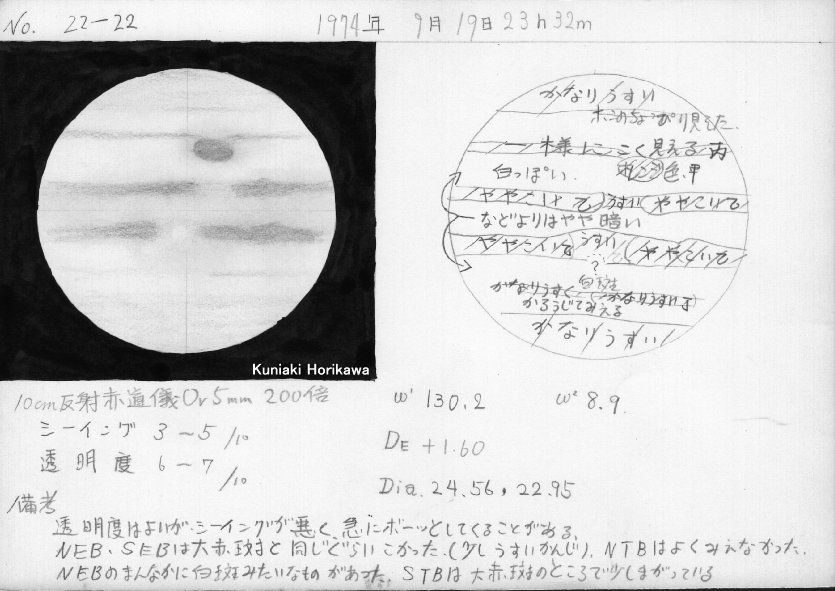 No. 22-22 1974年 9月19日23h32m
かなりうすい
ホンのちょっぴり見えた.
一様にこく見える 丙
白っぽい. 色.甲
ややこいて うすい ややこいて
などよりはやや暗い
ややこいて うすい ややこいて
?
白斑
かなりうすく かなりうすい 丁
かろうじてみえる
かなりうすい
Kuniaki Horikawa
10cm反射赤道儀Or5mm 200倍
シーイング 3~5/10
透明度 6~7/10
ω¹ 130.2 ω² 8.9.
DE +1.60
Dia. 24.56, 22.95
備考
透明度はよいが、シーイングが悪く、急にボーッとしてくることがある。
NEB・SEBは大赤斑と同じぐらいこかった.(少しうすいかんじ). NTBはよくみえなかった.
NEBのまんなかに白斑みたいなものがあった. STBは大赤斑のところで少しまがっている